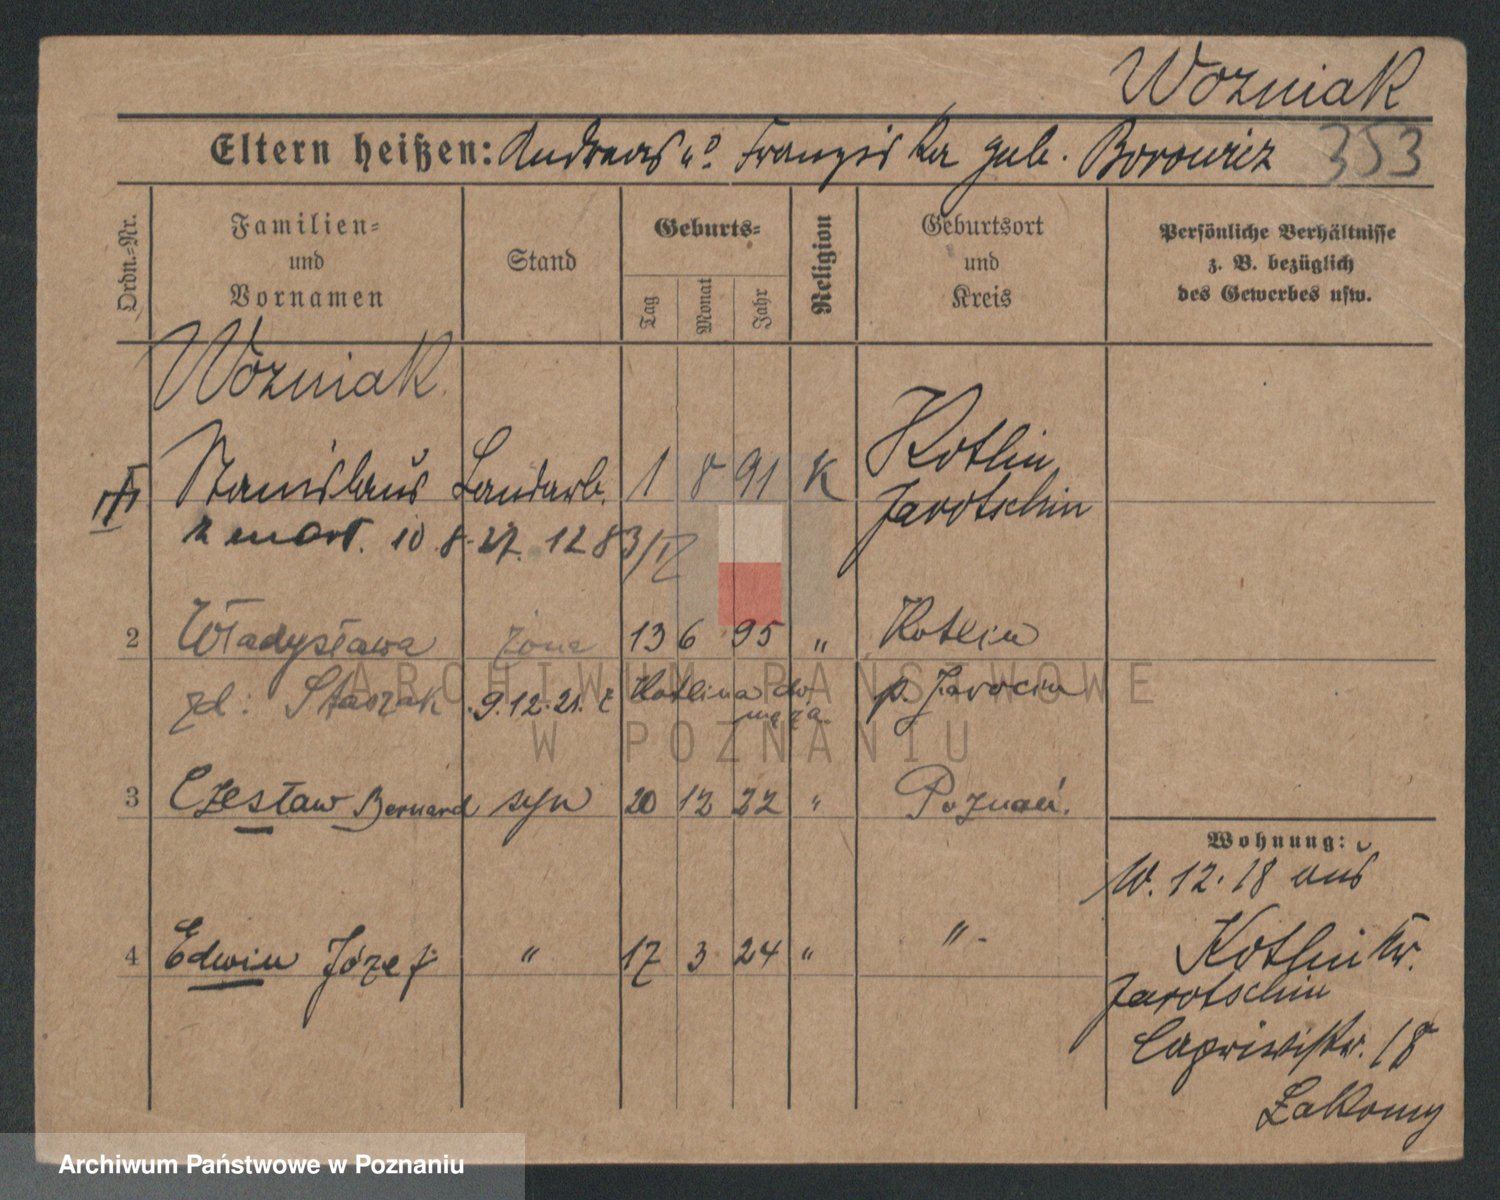 Wozniak
Eltern heißen: Andreas u. Franziska geb. Borowicz 353
Ordn.=Nr.
Familien= und Vornamen
Stand
Geburts=
Tag
Monat
Jahr
Religion
Geburtsort und Kreis
Persönliche Verhältnisse z. B. bezüglich des Gewerbes usw.
Wozniak
Stanislaus Landarb. 1 8 91 K Kotlin
Jarotschin
zmarł. 10.8.27. 1283/IV
2 Władysława żona 13 6 95 „ Kotlin
zd: Staszak 9.12.21. z Kotlina do męża. p. Jarocin
3 Czesław Bernard syn 20 12 22 „ Poznań.
4 Edwin Józef „ 17 3 24 „ „
Wohnung:
W. 12.18 aus
Kotlin Kr.
Jarotschin
Caprivistr. 18
Archiwum Państwowe w Poznaniu
ARCHIWUM PAŃSTWOWE
W POZNANIU